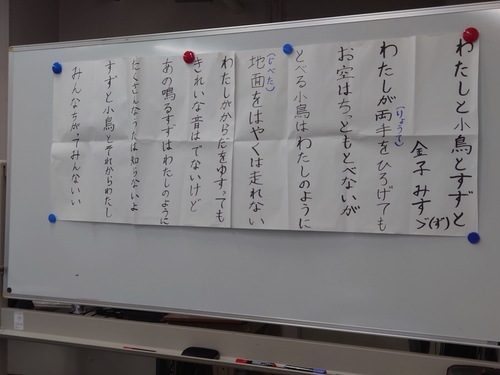 わたしと小鳥とすずと
金子 みすゞ(ず)
わたしが両手(りょうて)をひろげても
お空はちっともとべないが
とべる小鳥はわたしのように
地面(じべた)をはやくは走れない
わたしがからだをゆすっても
きれいな音はでないけど
あの鳴るすずはわたしのように
たくさんなうたは知らないよ
すずと小鳥とそれからわたし
みんなちがってみんないい